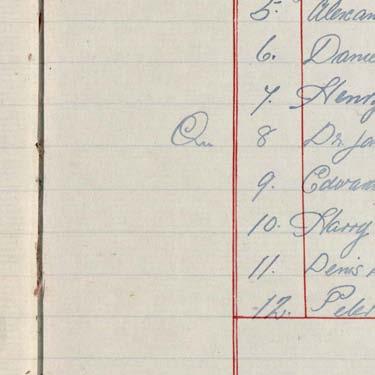 5. Alexan
6. Danie
7. Henry
Qu 8 Dr. Ja
9. Edwar
10. Harry
11. Denis
12. Peter